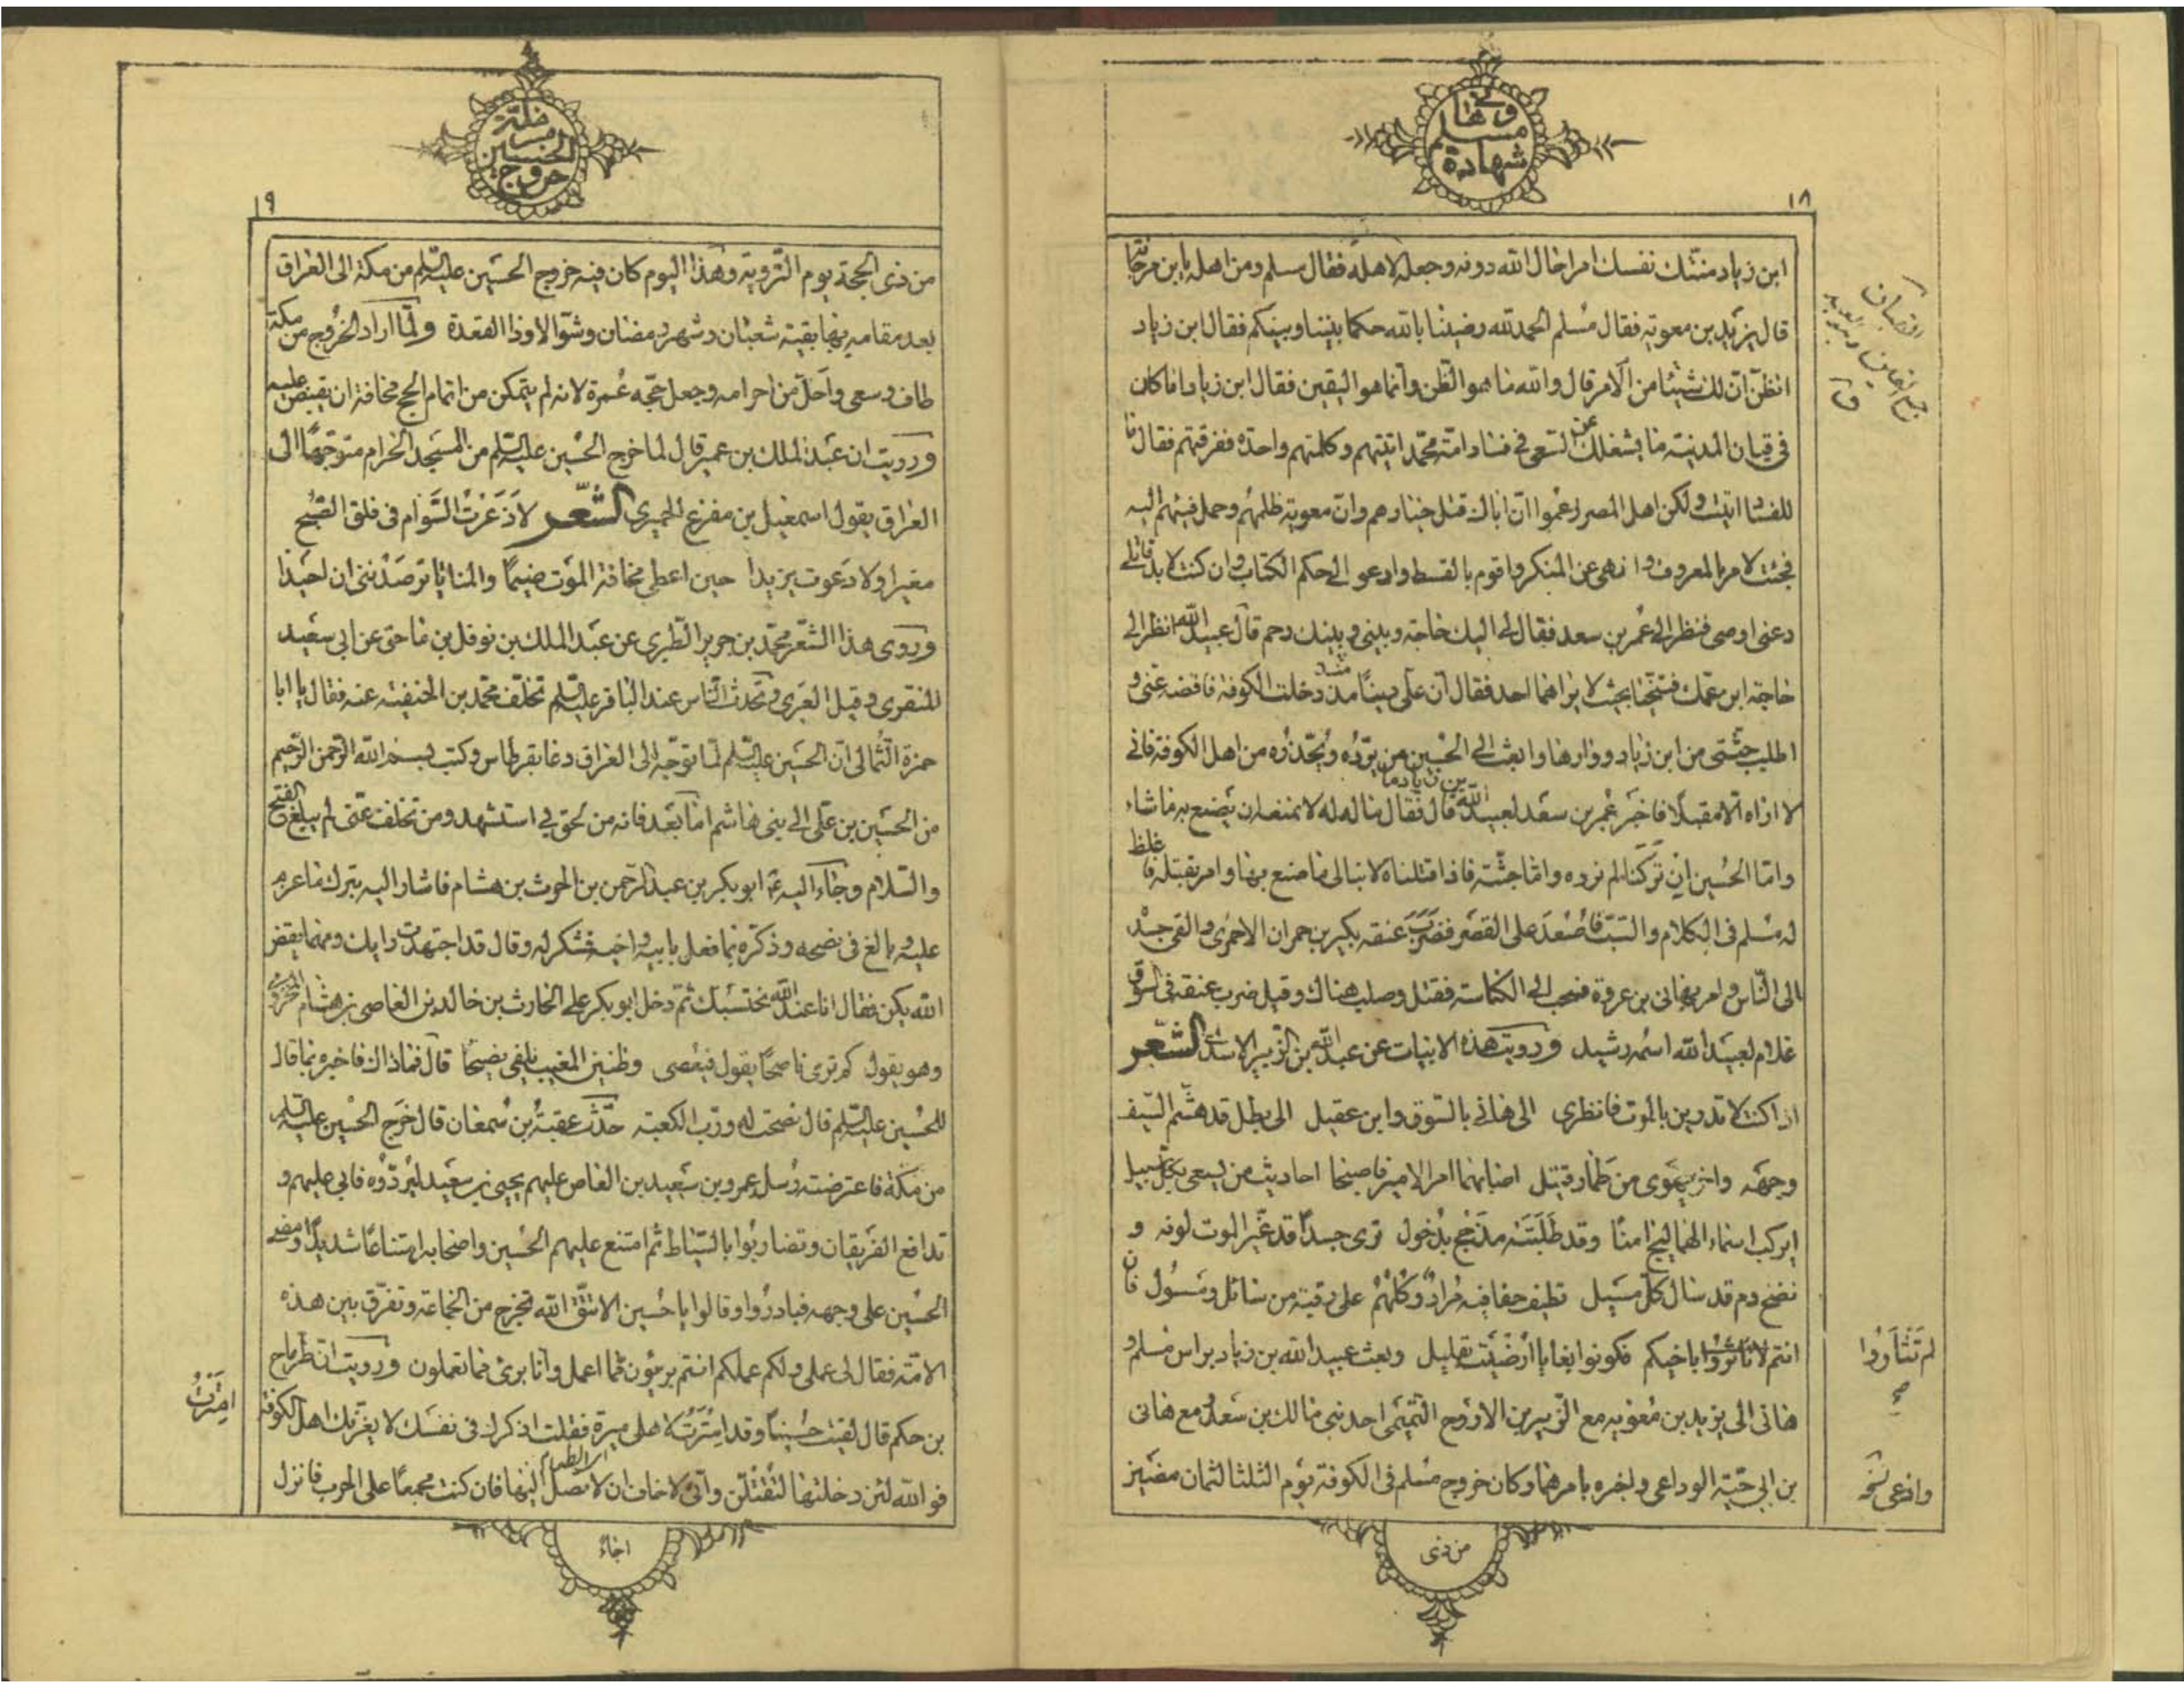 شهادة
مسلم
وهانى
١٨
ابن زياد منتك نفسك امرا حال الله دونه وجعله لاهله فقال مسلم ومن اهله يا بن مرجانة
قال يزيد بن معوية فقال مسلم الحمد لله رضينا بالله حكما بيننا وبينكم فقال ابن زياد
اتظن ان لك شيئا من الامر قال والله ما هو الظن وانما هو اليقين فقال ابن زياد اما كان
فى قيان المدينة ما يشغلك عن السعى فى فساد امة محمد اتيتهم وكلمتهم واحدة ففرقتهم فقال ما
للفساد اتيت ولكن اهل المصر زعموا ان اباك قتل خيارهم وان معوية ظلمهم وحمل فيئهم اليه
فجئت لامر بالمعروف وانهى عن المنكر واقوم بالقسط وادعو الى حكم الكتاب وان كنت لا بد قاتلى
دعنى اوصى فنظر الى عمر بن سعد فقال لى اليك حاجة وبينى وبينك رحم قال عبيد الله انظر الى
حاجة ابن عمك فتنحيا بحيث لا يراهما احد فقال ان على دينا منذ دخلت الكوفة فاقضه عنى و
اطلب جثتى من ابن زياد ووارها وابعث الى الحسين من يرده ويحذره من اهل الكوفة فانى
لا اراه الا مقبلا فاخبر عمر بن سعد لعبيد الله بن زياد ما قال فقال ماله له لا نمنعه ان يصنع به ما شاء
واما الحسين ان تركنا لم نرده واما جثته فاذا قتلناه لا نبالى ما صنع بها وامر بقتله فاغلظ
له مسلم فى الكلام والسب فاصعد على القصر فضرب عنقه بكير بن حمران الاحمرى والقى جسده
الى الناس وامر بهانى بن عروة فسحب الى الكناسة فقتل وصلب هناك وقيل ضرب عنقه فى السوق
غلام لعبيد الله اسمه رشيد ورويت هذه الابيات عن عبد الله بن الزبير الاسدى الشعر
اذا كنت لا تدرين بالموت فانظرى الى هانى بالسوق وابن عقيل الى بطل قد هشم السيف
وجهه واخر يهوى من طمار قتيل اصابهما امر الامير فاصبحا احاديث من يسعى بكل سبيل
ايركب اسماء الهماليج امنا وقد طلبته مذحج بذحول ترى جسدا قد غير الموت لونه و
نضخ دم قد سال كل مسيل تطيف حفافيه مراد وكلهم على رقبة من سائل ومسول فان
انتم لا تاثروا باخيكم فكونوا بغايا ارضيت بقليل وبعث عبيد الله بن زياد براس مسلم و
هانى الى يزيد بن معوية مع الزبير بن الاروح التميمى احد بنى مالك بن سعد مع هانى
بن ابى حية الوداعى واخبره بامرهما وكان خروج مسلم فى الكوفة يوم الثلثا لثمان مضين
لم تثاروا
من ذى
خروج
الحسين
من مكة
١٩
من ذى الحجة يوم التروية وهذا اليوم كان فيه خروج الحسين عليه السلم من مكة الى العراق
بعد مقامه بها بقية شعبان وشهر رمضان وشوالا وذا القعدة ولما اراد الخروج من مكة
طاف وسعى واحل من احرامه وجعل حجه عمرة لانه لم يتمكن من اتمام الحج مخافة ان يقبض عليه
ورويت ان عبد الملك بن عمير قال لما خرج الحسين عليه السلم من المسجد الحرام متوجها الى
العراق يقول اسمعيل بن مفزع الحميرى الشعر لا ذعرت السوام فى فلق الصبح
مغيرا ولا دعوت يزيدا حين اعطى مخافة الموت ضيما والمنايا ترصدننى ان احيدا
وروى هذا الشعر محمد بن جرير الطبرى عن عبد الملك بن نوفل بن ماحق عن ابى سعيد
المنقرى وقيل العبرى وتحدث الناس عند الباقر عليه السلم تخلف محمد بن الحنفية عنه فقال يا ابا
حمزة الثمالى ان الحسين عليه السلم لما توجه الى العراق دعا بقرطاس وكتب بسم الله الرحمن الرحيم
من الحسين بن على الى بنى هاشم اما بعد فانه من لحق بى استشهد ومن تخلف عنى لم يبلغ الفتح
والسلام وجاء اليه ابو بكر بن عبد الرحمن بن الحرث بن هشام فاشار اليه بترك ما عزم
عليه وبالغ فى نصحه وذكره بما فعل بابيه واخيه فشكر له وقال قد اجتهدت رايك ومهما يقض
الله يكن فقال انا عند الله نحتسبك ثم دخل ابو بكر على الحارث بن خالد بن العاصى بن هشام المخزومى
وهو يقول كم ترى ناصحا يقول فيعصى وظنين المغيب يلفى نصيحا قال فما ذاك فاخبره بما قال
للحسين عليه السلم قال نصحت له ورب الكعبة حدث عقبة بن سمعان قال خرج الحسين عليه السلم
من مكة فاعترضته رسل عمرو بن سعيد بن العاص عليهم يحيى بن سعيد ليردوه فابى عليهم و
تدافع الفريقان وتضاربوا بالسياط ثم امتنع عليهم الحسين واصحابه امتناعا شديدا ومضى
الحسين على وجهه فبادروا وقالوا يا حسين الا تتق الله تخرج من الجماعة وتفرق بين هذه
الامة فقال لى عملى ولكم عملكم انتم بريئون مما اعمل وانا برئ مما تعملون ورويت ان طرماح
بن حكم قال لقيت حسينا وقد امترت لاهلى ميرة فقلت اذكرك فى نفسك لا يغرنك اهل الكوفة
فو الله لئن دخلتها لتقتلن وانى لاخاف ان لا تصل اليها فان كنت مجمعا على الحرب فانزل
امترت
اجاء